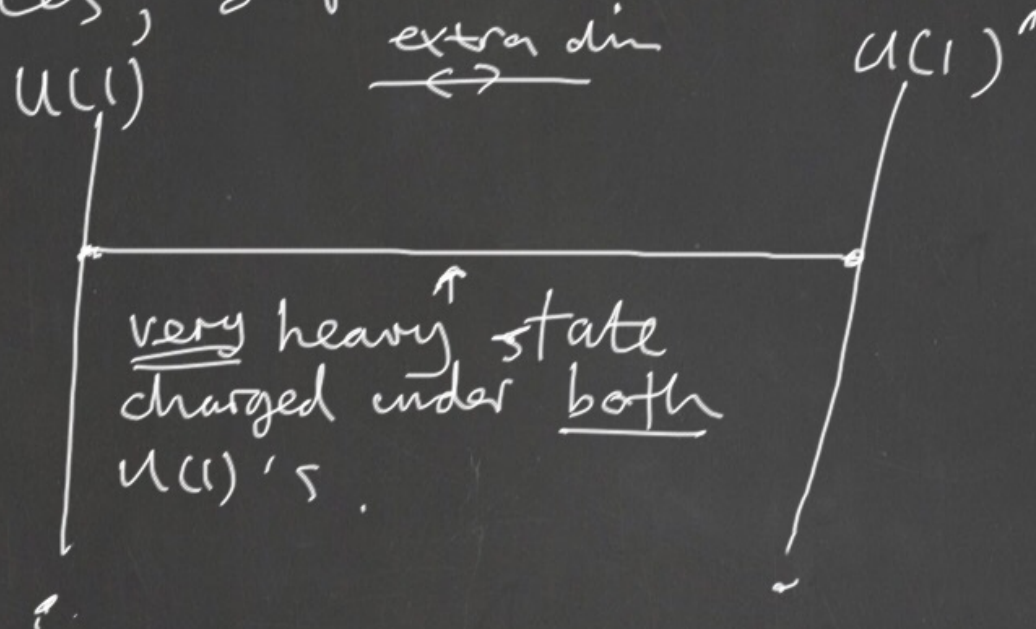 extra dim
U(1)
U(1)
very heavy state
charged under both
U(1)'s.